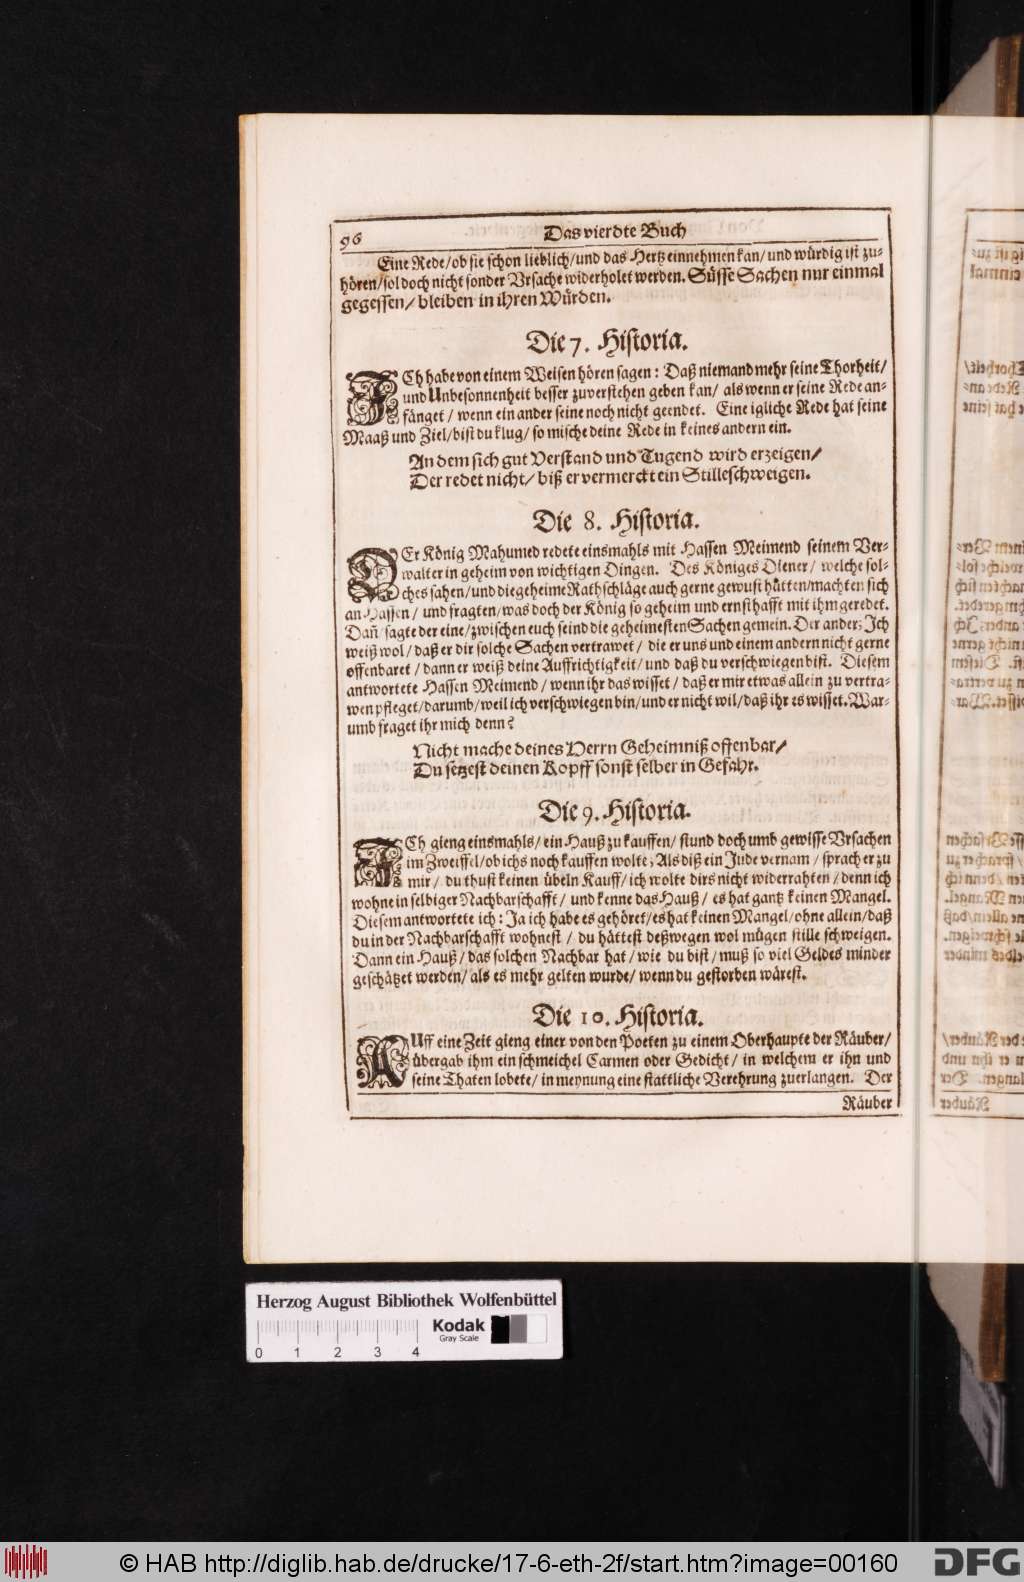 96
Das vierdte Buch
Eine Rede/ ob sie schon lieblich/ und das Hertz einnehmen kan/ und würdig ist zu-
hören/ sol doch nicht sonder Vrsache widerholet werden. Süsse Sachen nur einmal
gegessen/ bleiben in ihren Würden.
Die 7. Historia.
ICh habe von einem Weisen hören sagen: Daß niemand mehr seine Thorheit/
und Unbesonnenheit besser zuverstehen geben kan/ als wenn er seine Rede an-
fänget/ wenn ein ander seine noch nicht geendet. Eine igliche Rede hat seine
Maaß und Ziel/ bist du klug/ so mische deine Rede in keines andern ein.
An dem sich gut Verstand und Tugend wird erzeigen/
Der redet nicht/ biß er vermerckt ein Stilleschweigen.
Die 8. Historia.
DEr König Mahumed redete einsmahls mit Hassen Meimend seinem Ver-
walter in geheim von wichtigen Dingen. Des Königes Diener/ welche sol-
ches sahen/ und die geheime Rathschläge auch gerne gewust hätten/ machten sich
an Hassen/ und fragten/ was doch der König so geheim und ernsthafft mit ihm geredet.
Dañ sagte der eine/ zwischen euch seind die geheimesten Sachen gemein. Der ander; Ich
weiß wol/ daß er dir solche Sachen vertrawet/ die er uns und einem andern nicht gerne
offenbaret/ dann er weiß deine Auffrichtigkeit/ und daß du verschwiegen bist. Diesem
antwortete Hassen Meimend/ wenn ihr das wisset/ daß er mir etwas allein zu vertra-
wen pfleget/ darumb/ weil ich verschwiegen bin/ und er nicht wil/ daß ihr es wisset. War-
umb fraget ihr mich denn?
Nicht mache deines Herrn Geheimniß offenbar/
Du setzest deinen Kopff sonst selber in Gefahr.
Die 9. Historia.
ICh gieng einsmahls/ ein Hauß zu kauffen/ stund doch umb gewisse Vrsachen
im Zweiffel/ ob ichs noch kauffen wolte; Als diß ein Jude vernam/ sprach er zu
mir/ du thust keinen übeln Kauff/ ich wolte dirs nicht widerrahten/ denn ich
wohne in selbiger Nachbarschafft/ und kenne das Hauß/ es hat gantz keinen Mangel.
Diesem antwortete ich: Ja ich habe es gehöret/ es hat keinen Mangel/ ohne allein/ daß
du in der Nachbarschafft wohnest/ du hättest deßwegen wol mügen stille schweigen.
Dann ein Hauß/ das solchen Nachbar hat/ wie du bist/ muß so viel Geldes minder
geschätzet werden/ als es mehr gelten wurde/ wenn du gestorben wärest.
Die 10. Historia.
AUff eine Zeit gieng einer von den Poeten zu einem Oberhaupte der Räuber/
übergab ihm ein schmeichel Carmen oder Gedicht/ in welchem er ihn und
seine Thaten lobete/ in meynung eine stattliche Verehrung zuerlangen. Der
Räuber
Herzog August Bibliothek Wolfenbüttel
Kodak
Gray Scale
0 1 2 3 4
© HAB http://diglib.hab.de/drucke/17-6-eth-2f/start.htm?image=00160
DFG